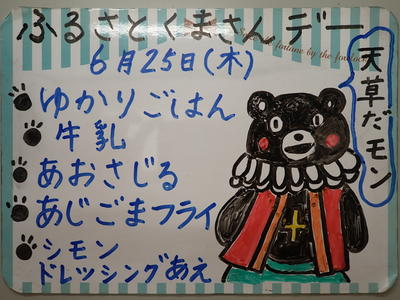 ふるさとくまさんデー
fontane by the fon
6月25日(木)
天草だモン
ゆかりごはん
牛乳
あおさじる
あじごまフライ
シモン
ドレッシングあえ